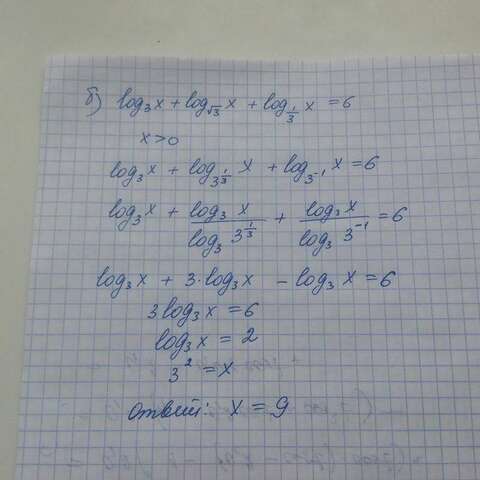 б) log₃x + log_√3 x + log_{1/3} x = 6
x>0
log₃x + log_{3^{1/3}} x + log_{3⁻¹} x = 6
log₃x + log₃ x / log₃ 3^{1/3} + log₃x / log₃ 3⁻¹ = 6
log₃x + 3·log₃x - log₃x = 6
3log₃x = 6
log₃x = 2
3² = x
ответ: x = 9